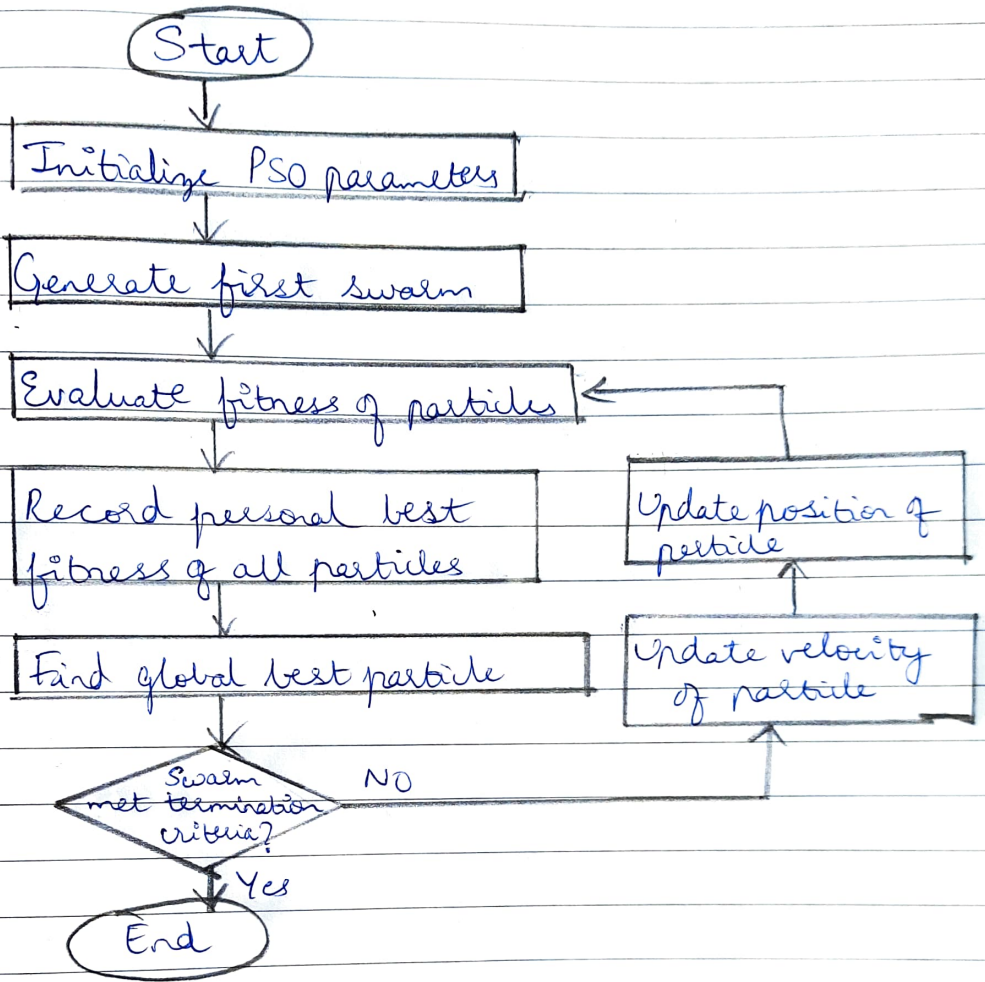 Start
Initialize PSO parameters
Generate first swarm
Evaluate fitness of particles
Record personal best
fitness of all particles
Find global best particle
Swarm
met termination
criteria?
NO
Yes
End
Update velocity
of particle
Update position of
particle